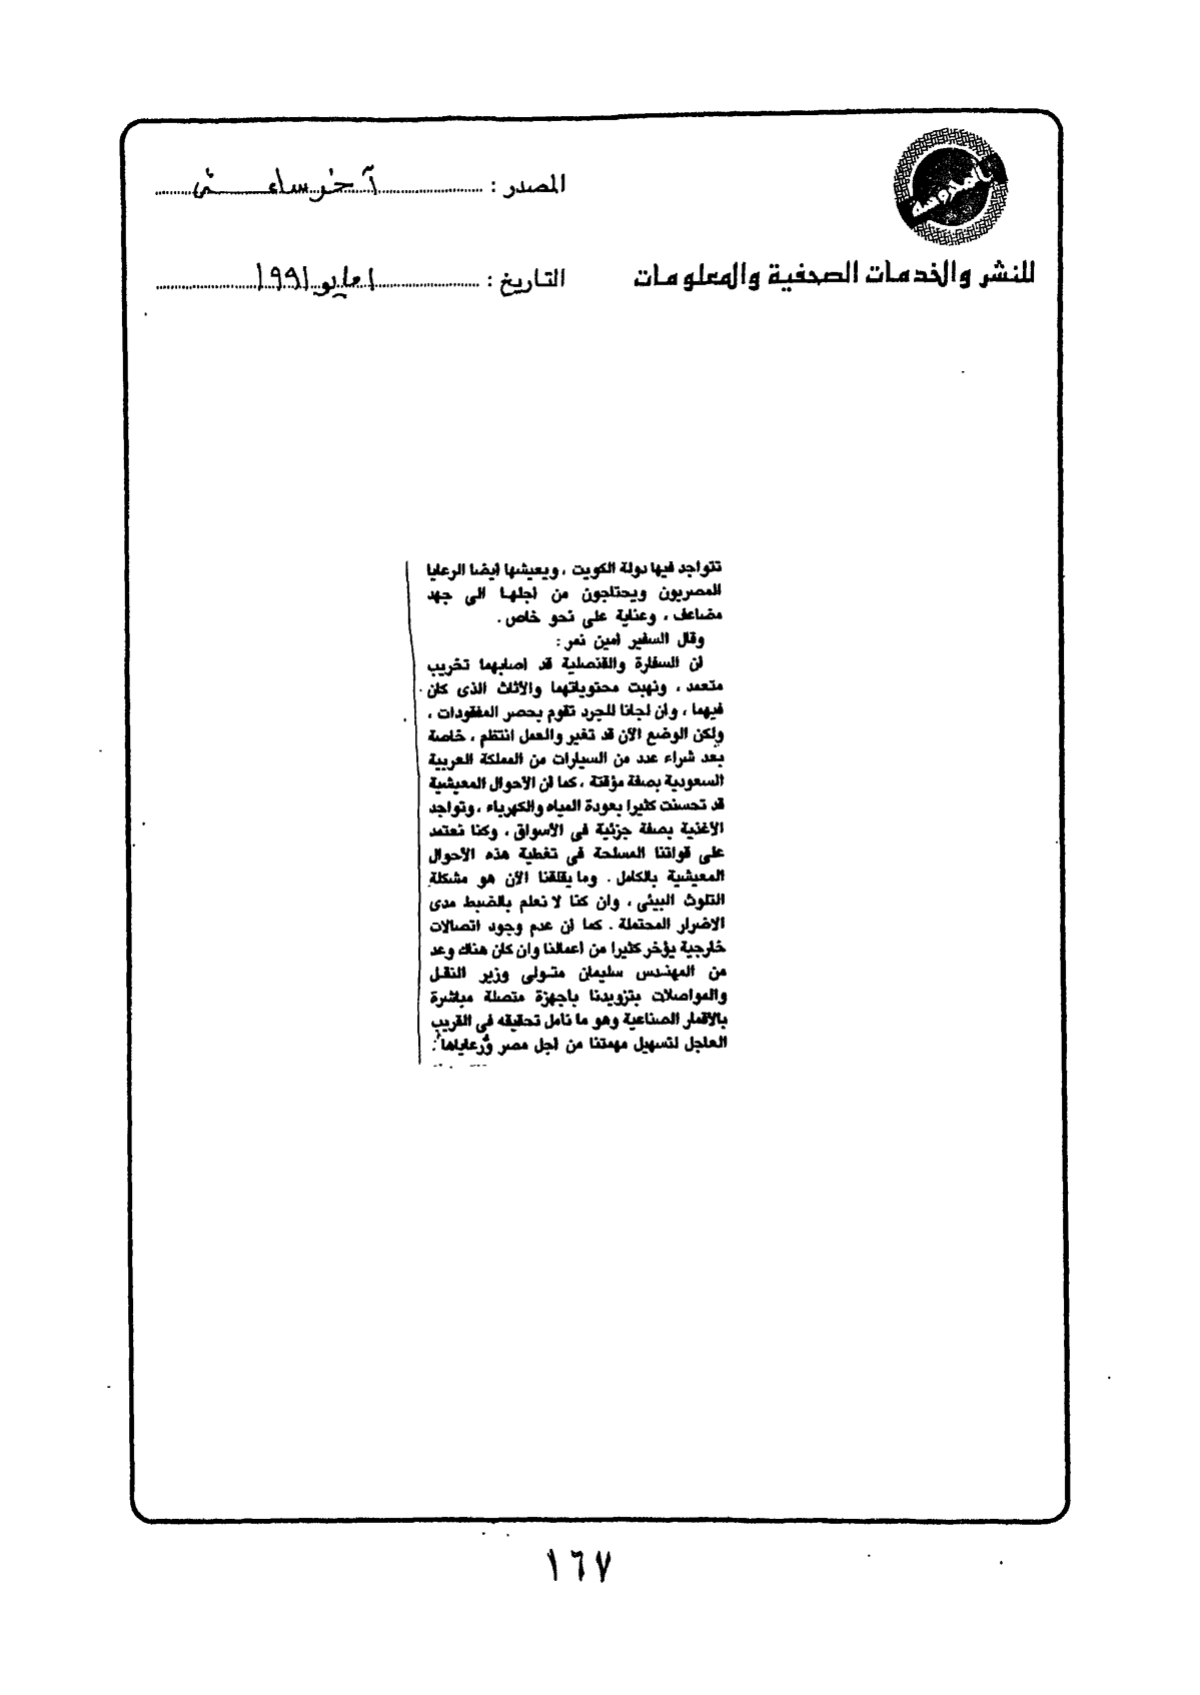 المصدر : آخر ساعة
للنشر والخدمات الصحفية والمعلومات
التاريخ : ١ مايو ١٩٩١
تتواجد فيها دولة الكويت ، ويعيشها ايضا الرعايا
المصريون ويحتاجون من اجلها الى جهد
مضاعف ، وعناية على نحو خاص .
وقال السفير امين نمر :
ان السفارة والقنصلية قد اصابهما تخريب
متعمد ، ونهبت محتوياتهما والأثاث الذى كان
فيهما ، وان لجانا للجرد تقوم بحصر المفقودات ،
ولكن الوضع الآن قد تغير والعمل انتظم ، خاصة
بعد شراء عدد من السيارات من المملكة العربية
السعودية بصفة مؤقتة ، كما ان الأحوال المعيشية
قد تحسنت كثيرا بعودة المياه والكهرباء ، وتواجد
الأغذية بصفة جزئية فى الأسواق ، وكنا نعتمد
على قواتنا المسلحة فى تغطية هذه الأحوال
المعيشية بالكامل . وما يقلقنا الآن هو مشكلة
التلوث البيئى ، وان كنا لا نعلم بالضبط مدى
الاضرار المحتملة . كما ان عدم وجود اتصالات
خارجية يؤخر كثيرا من اعمالنا وان كان هناك وعد
من المهندس سليمان متولى وزير النقل
والمواصلات بتزويدنا باجهزة متصلة مباشرة
بالاقمار الصناعية وهو ما نامل تحقيقه فى القريب
العاجل لتسهيل مهمتنا من اجل مصر ورعاياها .
١٦٧